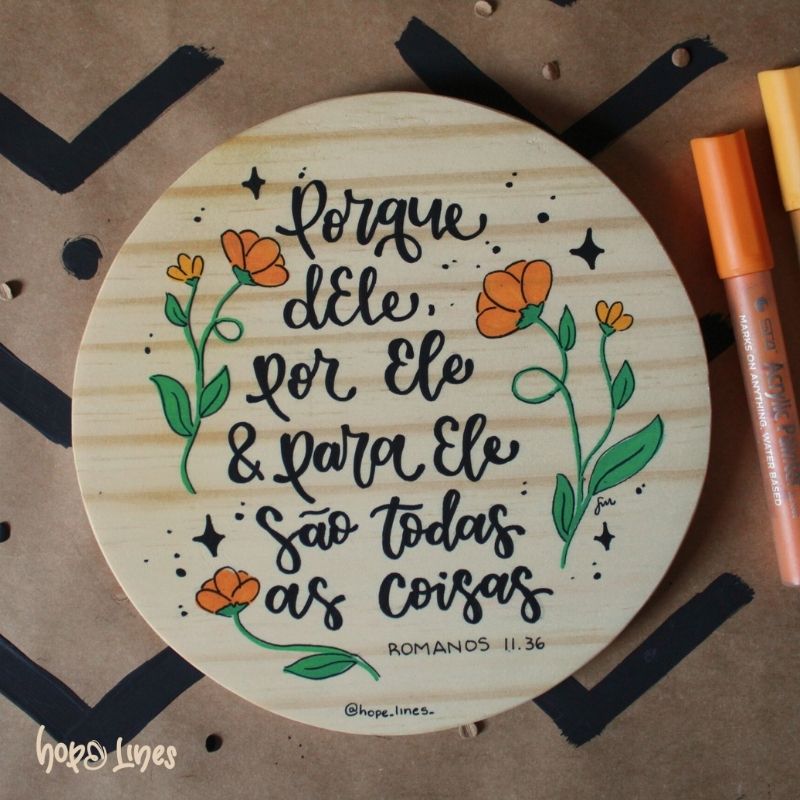 Porque
dEle,
por Ele
& para Ele
são todas
as coisas
ROMANOS 11.36
@hope_lines_
hope Lines
Acrylic Painter
MARKS ON ANYTHING, WATER BASED